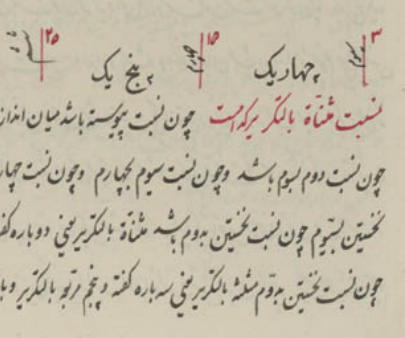 ۳ سوم بچهار یک ۱۵ چهارم بپنج یک ۲۵
نسبت مثناة بالتکریر کدامست چون نسبت پیوسته باشد میان انداز
چون نسبت دوم بسوم باشد وچون نسبت سیوم بچهارم وچون نسبت چهار
نخستین بسیوم چون نسبت نخستین بدوم باشد مثناة بالتکریر یعنی دوباره کف
چون نسبت نخستین بدوم مثلثه بالتکریر یعنی سه باره کفته و پنجم مربعه بالتکریر و با